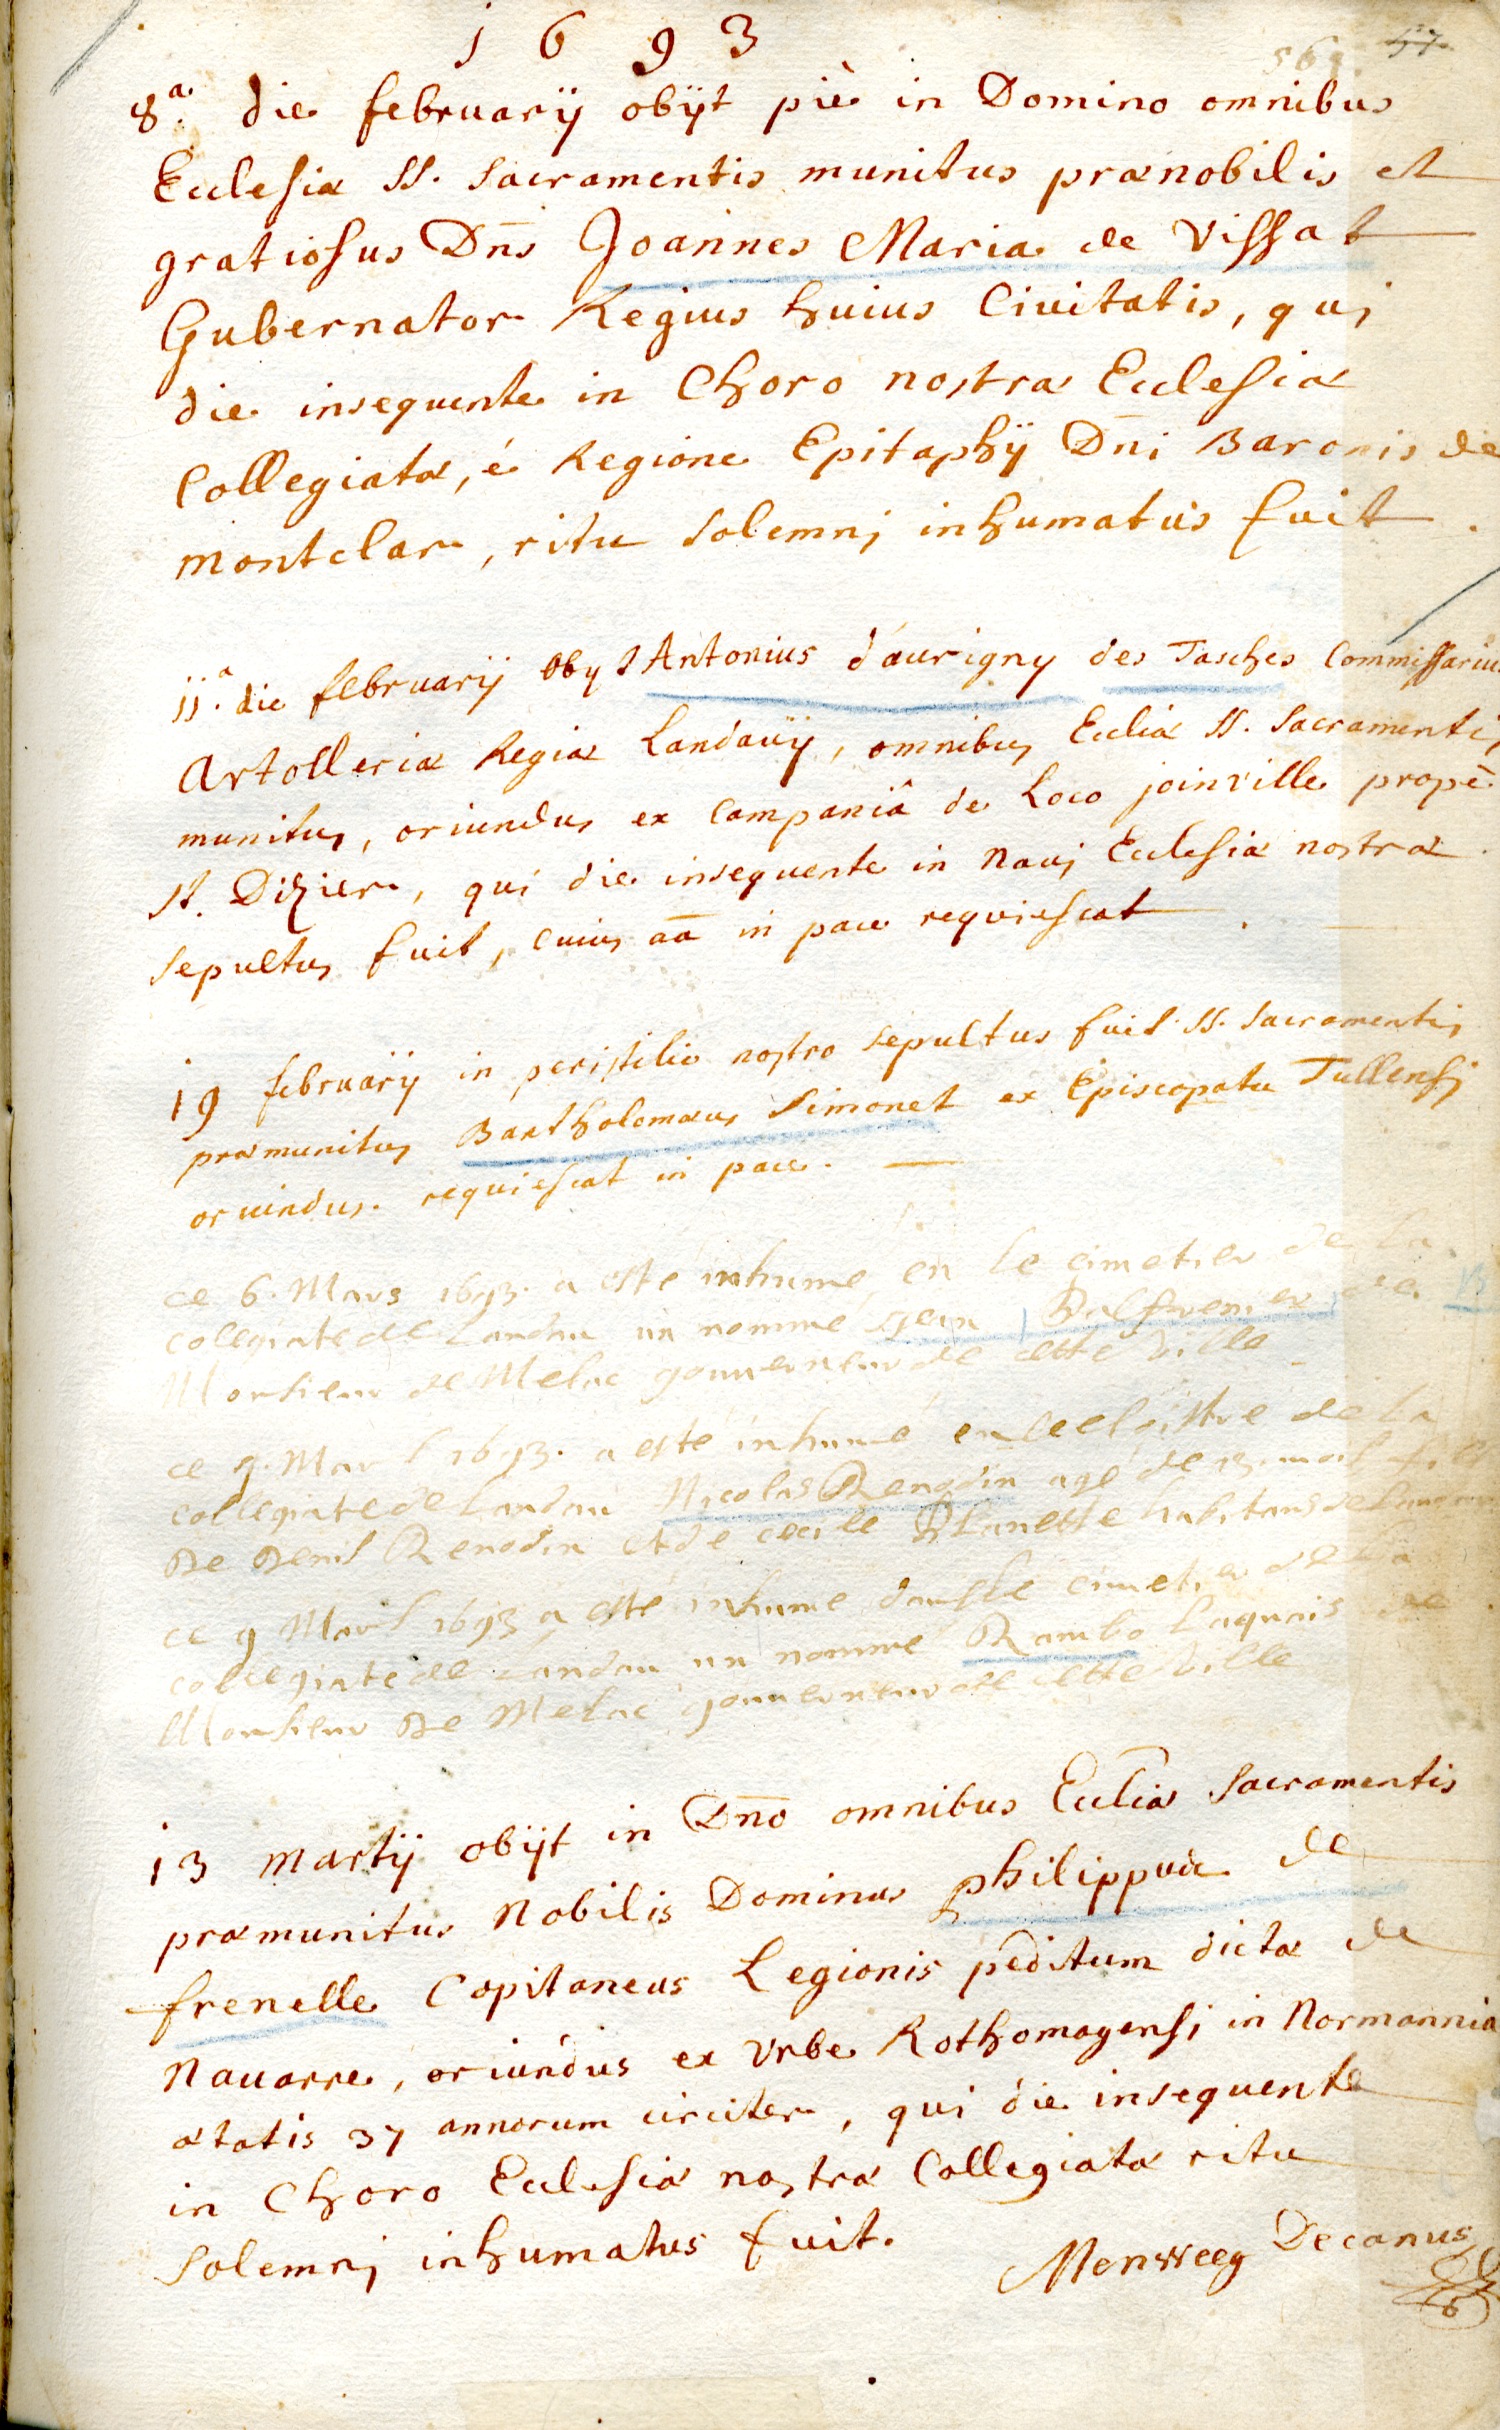 1693
56 57
8.a die februarij obijt piè in Domino omnibus
Ecclesiæ SS. Sacramentis munitus prænobilis et
gratiosus Dn̄s Joannes Maria de Vissat
Gubernator Regius huius Ciuitatis, qui
die insequente in Choro nostræ Ecclesiæ
Collegiatæ, é Regione Epitaphij Dn̄i Baronis de
montclar, ritu Solemnj inhumatus fuit.
11.a die februarij obyt Antonius d'aurigny des Tasches Commissarius
Artolleriæ Regiæ Landavij, omnibus Eccliæ SS. Sacramentis
munitus, oriundus ex Campaniâ de Loco joinville propè
St. Dizier, qui die insequente in Navj Ecclesiæ nostræ
Sepultus fuit, cuius aā in pace requiescat.
19 februarij in peristilio nostro sepultus fuit SS. Sacramentis
præmunitus Bartholomæus Simonet ex Episcopatu Tullensj
oriundus. requiescat in pace.
ce 6. Mars 1693. a esté inhumé en le cimetier de La
collegiate de Landau un nommé Jean Palfrenier de
Monsieur de Melac gouverneur de cette ville
ce 9. Mars 1693. a esté inhumé en le cloistre de La
collegiate de Landau Nicolas Renodin agé de 13. mois fils
De Denis Renodin et de cecile Planette habitans de Landau
ce 9 Mars 1693 a esté inhumé dans le cimetier de La
collegiate de Landau un nommé Rambo Laquais de
Monsieur De Melac gouverneur de cette ville
13 Martij obijt in Dn̄o omnibus Eccliæ Sacramentis
præmunitus Nobilis Dominus philippus de
frenelle Capitaneus Legionis peditum dictæ de
Nauarre, oriundus ex Vrbe Rothomagensi in Normannia
ætatis 37 annorum circiter, qui die insequente
in Choro Ecclesiæ nostræ Collegiatæ ritu
Solemnj inhumatus fuit.
Menweeg Decanus